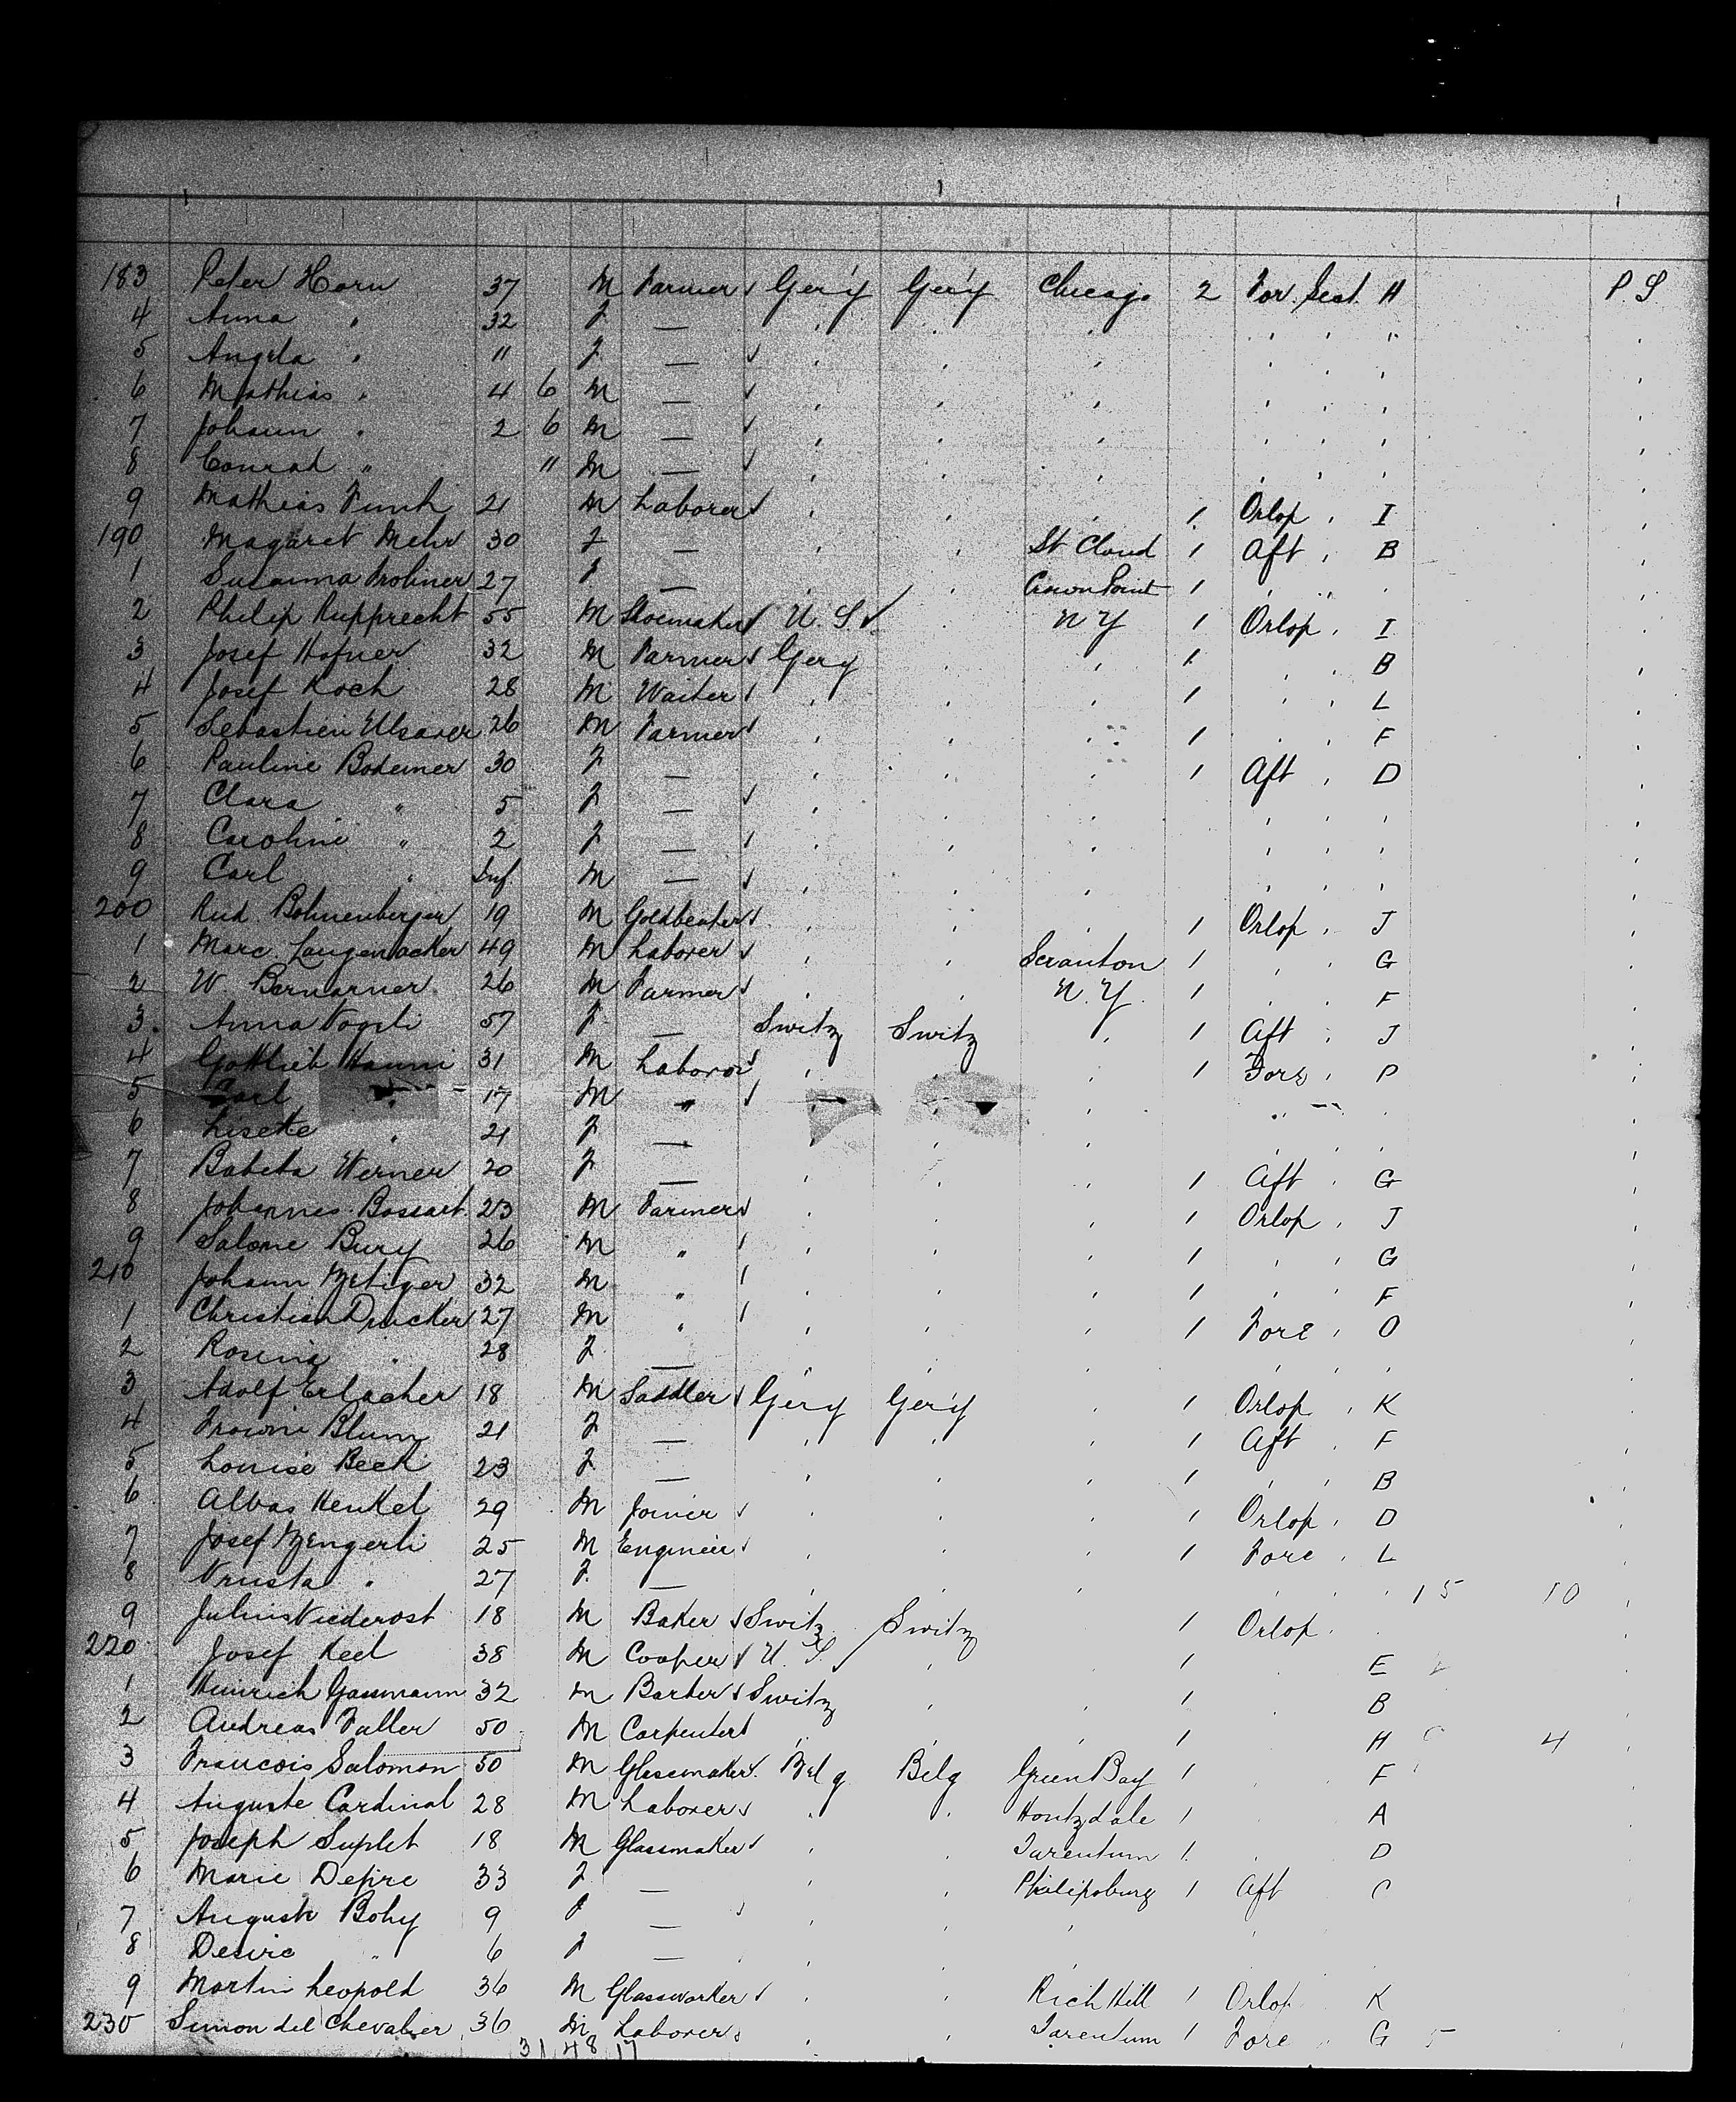 183 Peter Horn 37 M Farmer Ger'y Ger'y Chicago 2 For. Sect. H P S
4 Anna " 32 F —
5 Angela " 11 F —
6 Mathias " 4 6 M —
7 Johann " 2 6 M —
8 Conrad " 11 M —
9 Mathias Funk 21 M Laborer 1 Orlop " I
190 Magaret Mehr 30 F — St Cloud 1 Aft " B
1 Susanna Troliner 27 F — 1
2 Philip Rupprecht 55 M Shoemaker U. S. N Y 1 Orlop " I
3 Josef Hafner 32 M Farmer Gery 1 B
4 Josef Koch 28 M Waiter 1 L
5 Sebastien 26 M Farmer 1 F
6 Pauline Bodemer 30 F — 1 Aft " D
7 Clara " 5 F —
8 Caroline " 2 F —
9 Carl " Inf. M —
200 Rud. Bohnenberger 19 M Goldbeater 1 Orlop " J
1 Marc Langenacker 49 M Laborer Scranton 1 G
2 W. Bernarner 26 M Farmer N. Y. 1 F
3 Anna Vogeli 57 F — Switz Switz 1 Aft " J
4 Gottlieb Hanni 31 M Laborer 1 Fore " P
5 Carl " 17 M "
6 Lisette " 21 F —
7 Babeta Werner 20 F — 1 Aft " G
8 Johannes Bossart 23 M Farmer 1 Orlop " J
9 Salome Bury 26 M " 1 G
210 Johann Metzger 32 M " 1 F
1 Christian Drucker 27 M " 1 Fore " O
2 Rosina " 28 F —
3 Adolf Erlacher 18 M Saddler Gery Ger'y 1 Orlop " K
4 Blum 21 F — 1 Aft " F
5 Louise Beck 23 F — 1 B
6 Alban Henkel 29 M Joiner 1 Orlop " D
7 Josef Zengerli 25 M Engineer 1 Fore " L
8 " 27 F — 15 10
9 Julius Niederost 18 M Baker Switz Switz 1 Orlop "
220 Josef Keel 38 M Cooper U. S. 1 E
1 Heinrich Gassmann 32 M Barber Switz 1 B
2 Andreas Faller 50 M Carpenter 1 H 4
3 Francois Salomon 50 M Glassmaker Belg Belg Green Bay 1 F
4 Auguste Cardinal 28 M Laborer Houtzdale 1 A
5 Joseph Suplet 18 M Glassmaker Tarentum 1 D
6 Marie Depre 33 F — Philipsburg 1 Aft C
7 Auguste Bohy 9 F —
8 Desire " 6 F —
9 Martin Leopold 36 M Glassworker Rich Hill 1 Orlop K
230 Simon del Chevalier 36 M Laborer Tarentum 1 Fore " G 5
31 48 17